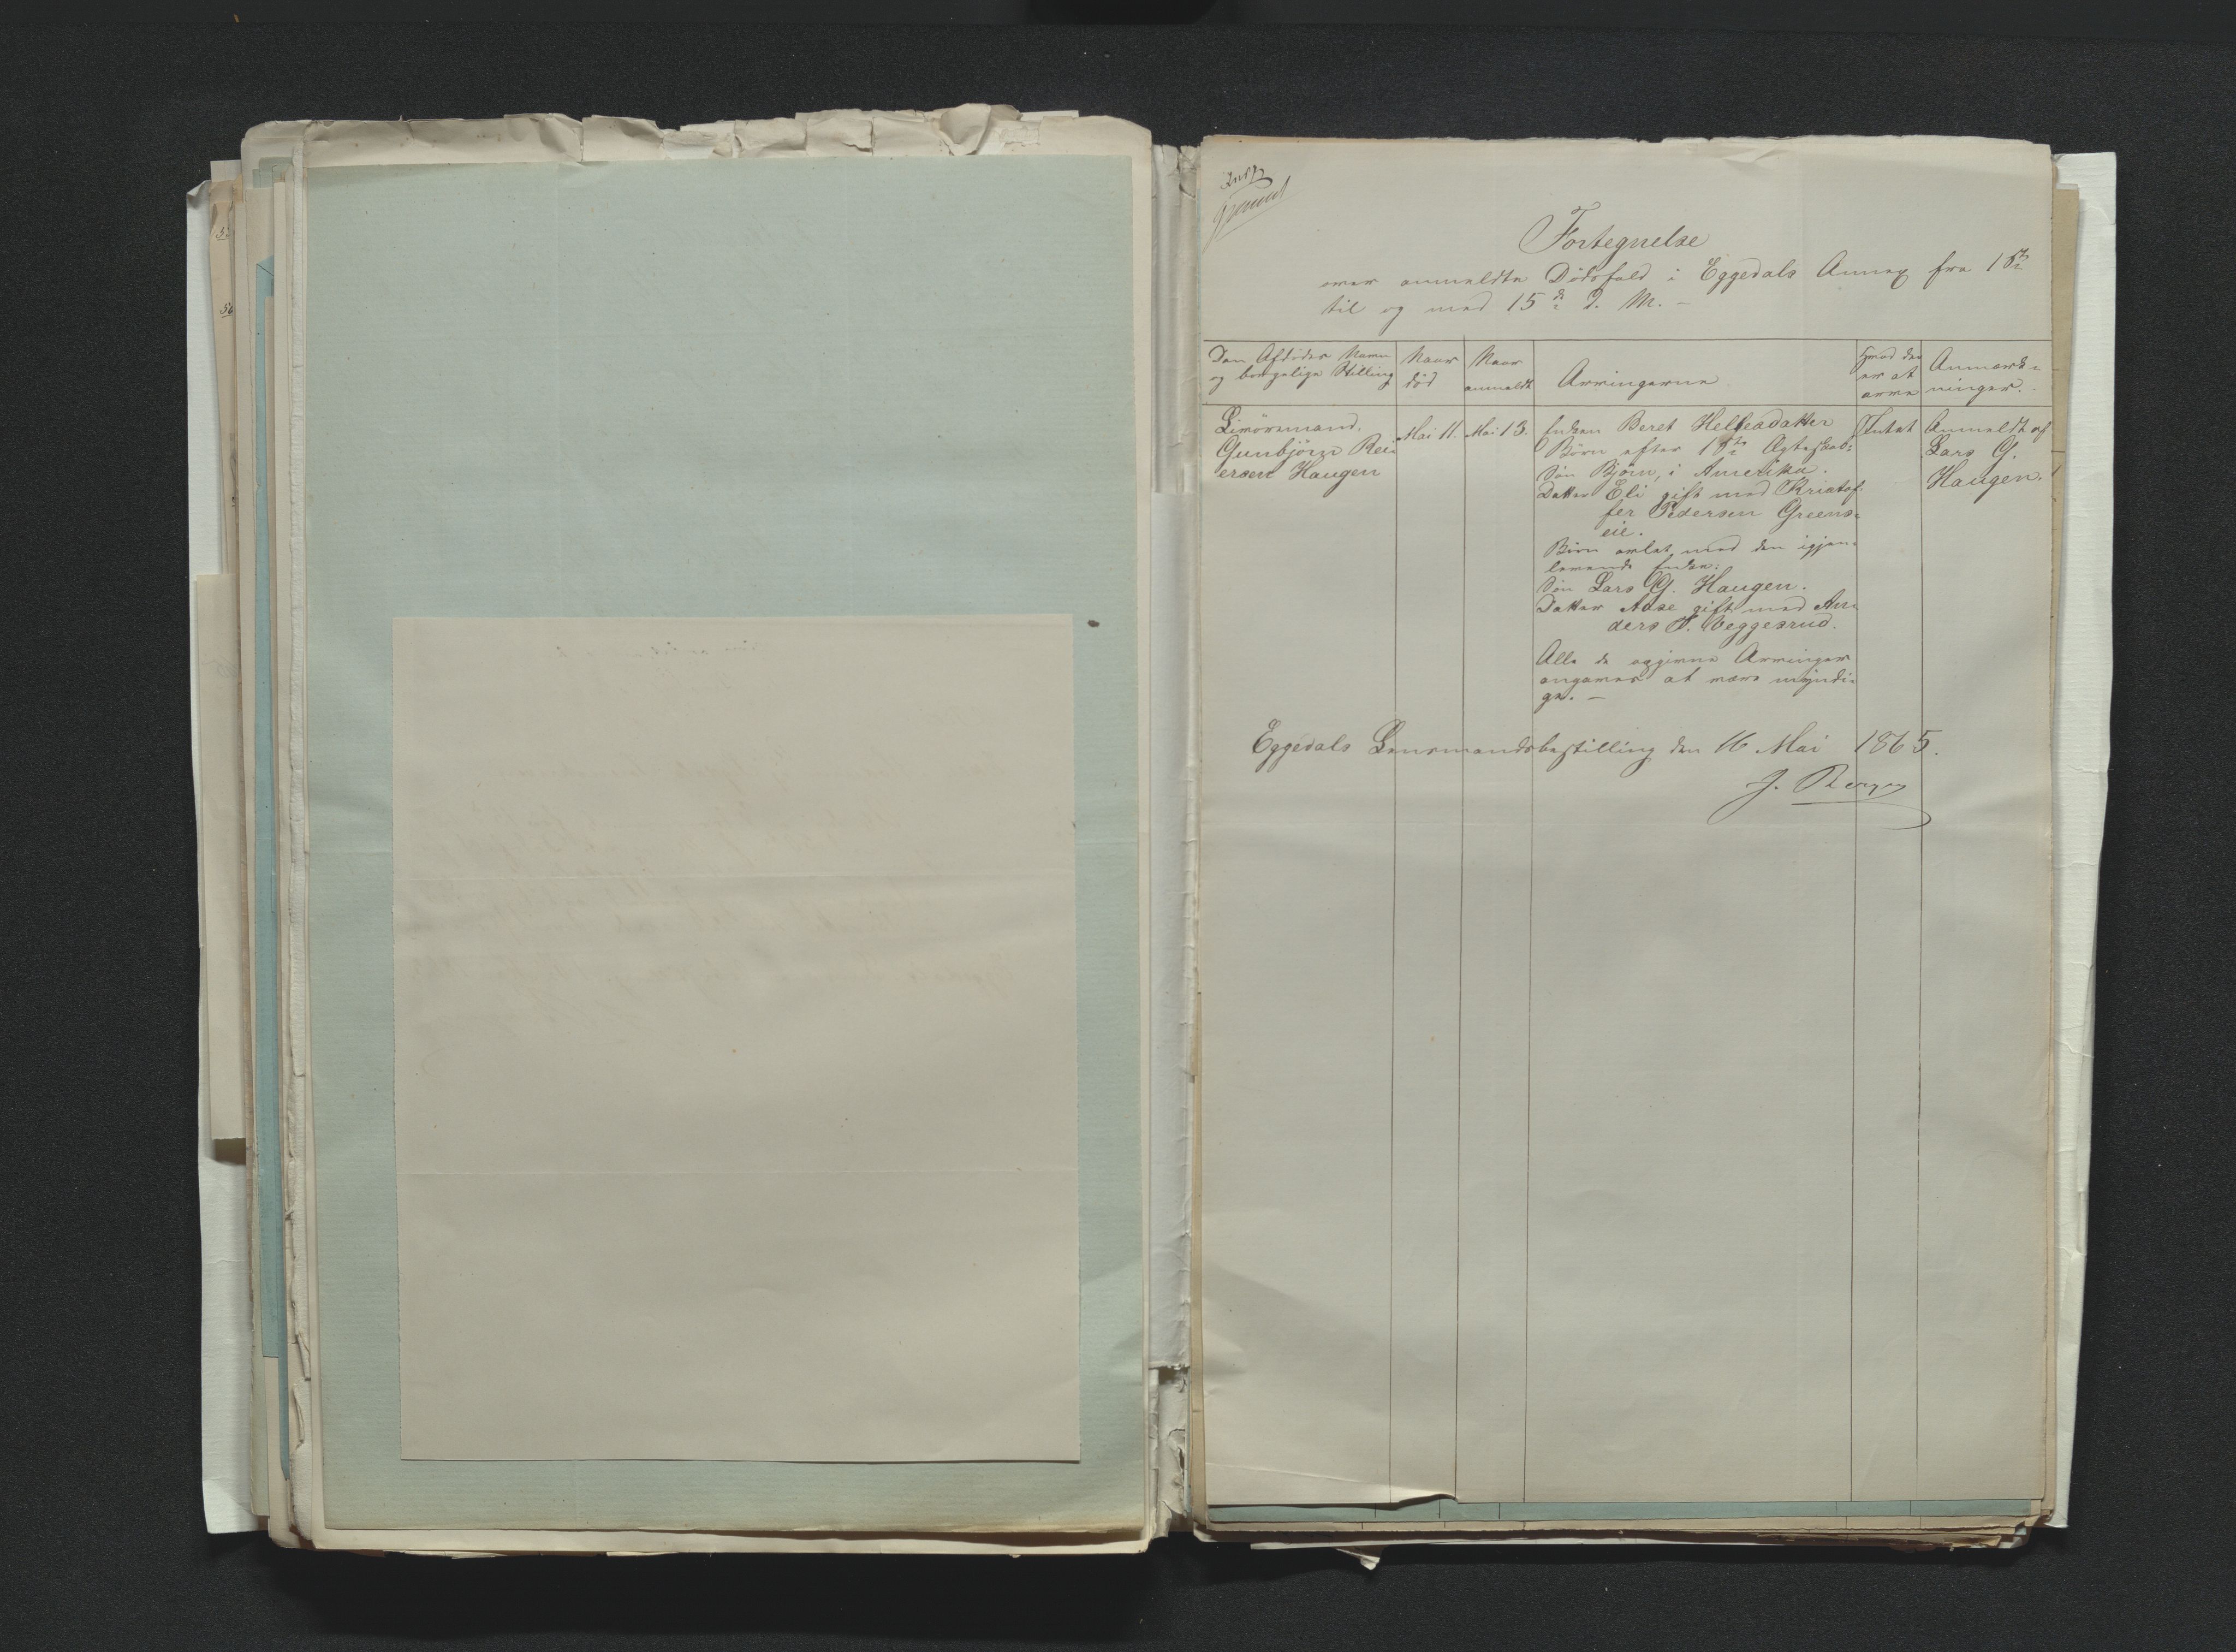 Fortegnelse
over anmeldte Dødsfald i Eggedals Annex fra 1ste
til og med 15de d. M. –
Den Afdødes Navn
og borgelige Stilling
Naar
død
Naar
anmeldt
Arvingerne
Hvad der
er at
arve
Anmærk-
ninger.
Livøremand.
Gunbjørn Rei-
ersen Haugen
Mai 11.
Mai 13.
Enken Beret Hellesdatter
Børn efter 1ste Ægteskab:
Søn Bjørn, i Amerika.
Datter Eli gift med Kristof-
fer Pedersen Greens-
eie.
Børn avlet med den igjen-
levende Enke:
Søn Lars G. Haugen.
Datter Aase gift med An-
ders T. Veggesrud.
Alle de opgivne Arvinger
angaves at være myndi-
ge. –
Intet
Anmeldt af
Lars G.
Haugen.
Eggedals Lensmandsbestilling den 16 Mai 1865.
J. Bergan